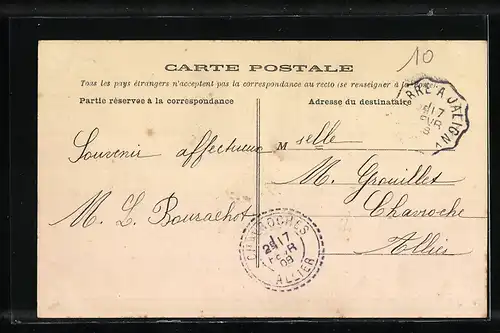 10
CARTE POSTALE
Tous les pays étrangers n'acceptent pas la correspondance au recto (se renseigner à la Poste)
Partie réservée à la correspondance
Adresse du destinataire
A JALIGNY
17
Souvenir affectueux
M selle
M. Grouillet
M. L. Bourachot
Chavroche
Allier
CHAVROCHES
17
FEVR
09
ALLIER